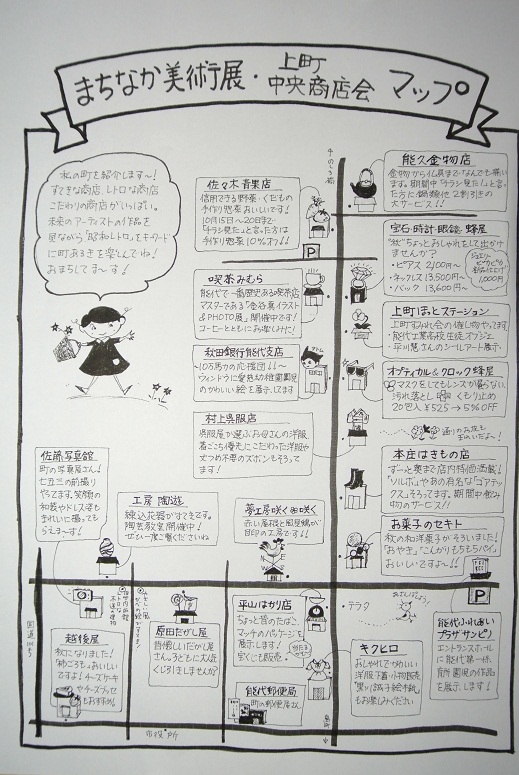 まちなか美術展・上町中央商店会 マップ
私の町を紹介します～!
すてきな商店、レトロな商店
こだわりの商店がいっぱい。
未来のアーティストの作品を
見ながら「昭和レトロ」をキーワード
に町あるきを楽しんでね!
おまちしてま～す!
佐々木青果店
信用できる野菜・くだもの
手作り惣菜おいしいです!
10月15日～20日まで
「チラシ見た!」と言った方は
手作り惣菜10%オフ!!
P
喫茶みむら
能代で一番歴史ある喫茶店
マスターである
&PHOTO展」開催中です!
コーヒーとともにお楽しみ下さい!
秋田銀行能代支店
ウィンドウに
を展示してます
村上呉服店
呉服屋が選ぶお母さんの洋服
着ごこち優先にこだわった洋服や
丈つめ不要のズボンもそろって
ます!
能久金物店
金物から仏具までなんでも揃い
ます。期間中「チラシ見た!」と言っ
た方に
大サービス!!
宝石・時計・眼鏡 蜂屋
"秋"ちょっとおしゃれをして出かけ
ませんか?
・ピアス 2,100円～
・ネックレス 13,500円～
・バック 13,600円～
1,000円
上町ほっとステーション
上町すみれ会の催し物やってます
能代工業高校生徒オブジェ
・平川慧さんのシールアート展示
オプティカル&クロック蜂屋
マスクをしてもレンズが曇らない
汚れ落とし くもり止め
20包入 ¥525→5%OFF
本庄はきもの店
ずーっと奥まで店内特価満載!
「ソルボ」やあの有名な「ゴアテッ
クス」そろってます。期間中飲み
物のサービス!!
お菓子のセキト
秋の和洋菓子がそろいました!
「おやき」「こんがりもちもちパイ」
おいしいですよ～!!
佐藤写真館
町の写真屋さん!
七五三の前撮り
やってます。笑顔の
和装やドレス姿も
きれいに撮っても
らえま～す!
工房 陶遊
練込花器がすてきです。
陶芸教室開催中!
ぜひ一度ご覧くださいね
夢工房 咲く咲く
赤い屋根と風見鶏が
目印の工房です!!
越後屋
秋になりました!
「柿ごろも」おいしい
ですよ! チーズケーキ
やチーズブッセ
もおすすめ!
原田だがし屋
昔懐しいだがし屋
さん。子どもに大人
くじ引きしませんか?
平山はかり店
ちょと昔のたばこ
マッチのパッケージを
展示します!
宝くじも販売
能代郵便局
町の郵便屋さん
キクヒロ
おしゃれでかわいい
洋服・下着・小物販売
お楽しみください
能代ふれあい
プラザ サンピノ
エントランスホール
に能代第一保
育園児の作品
を展示します!
P
テラタ
市役所